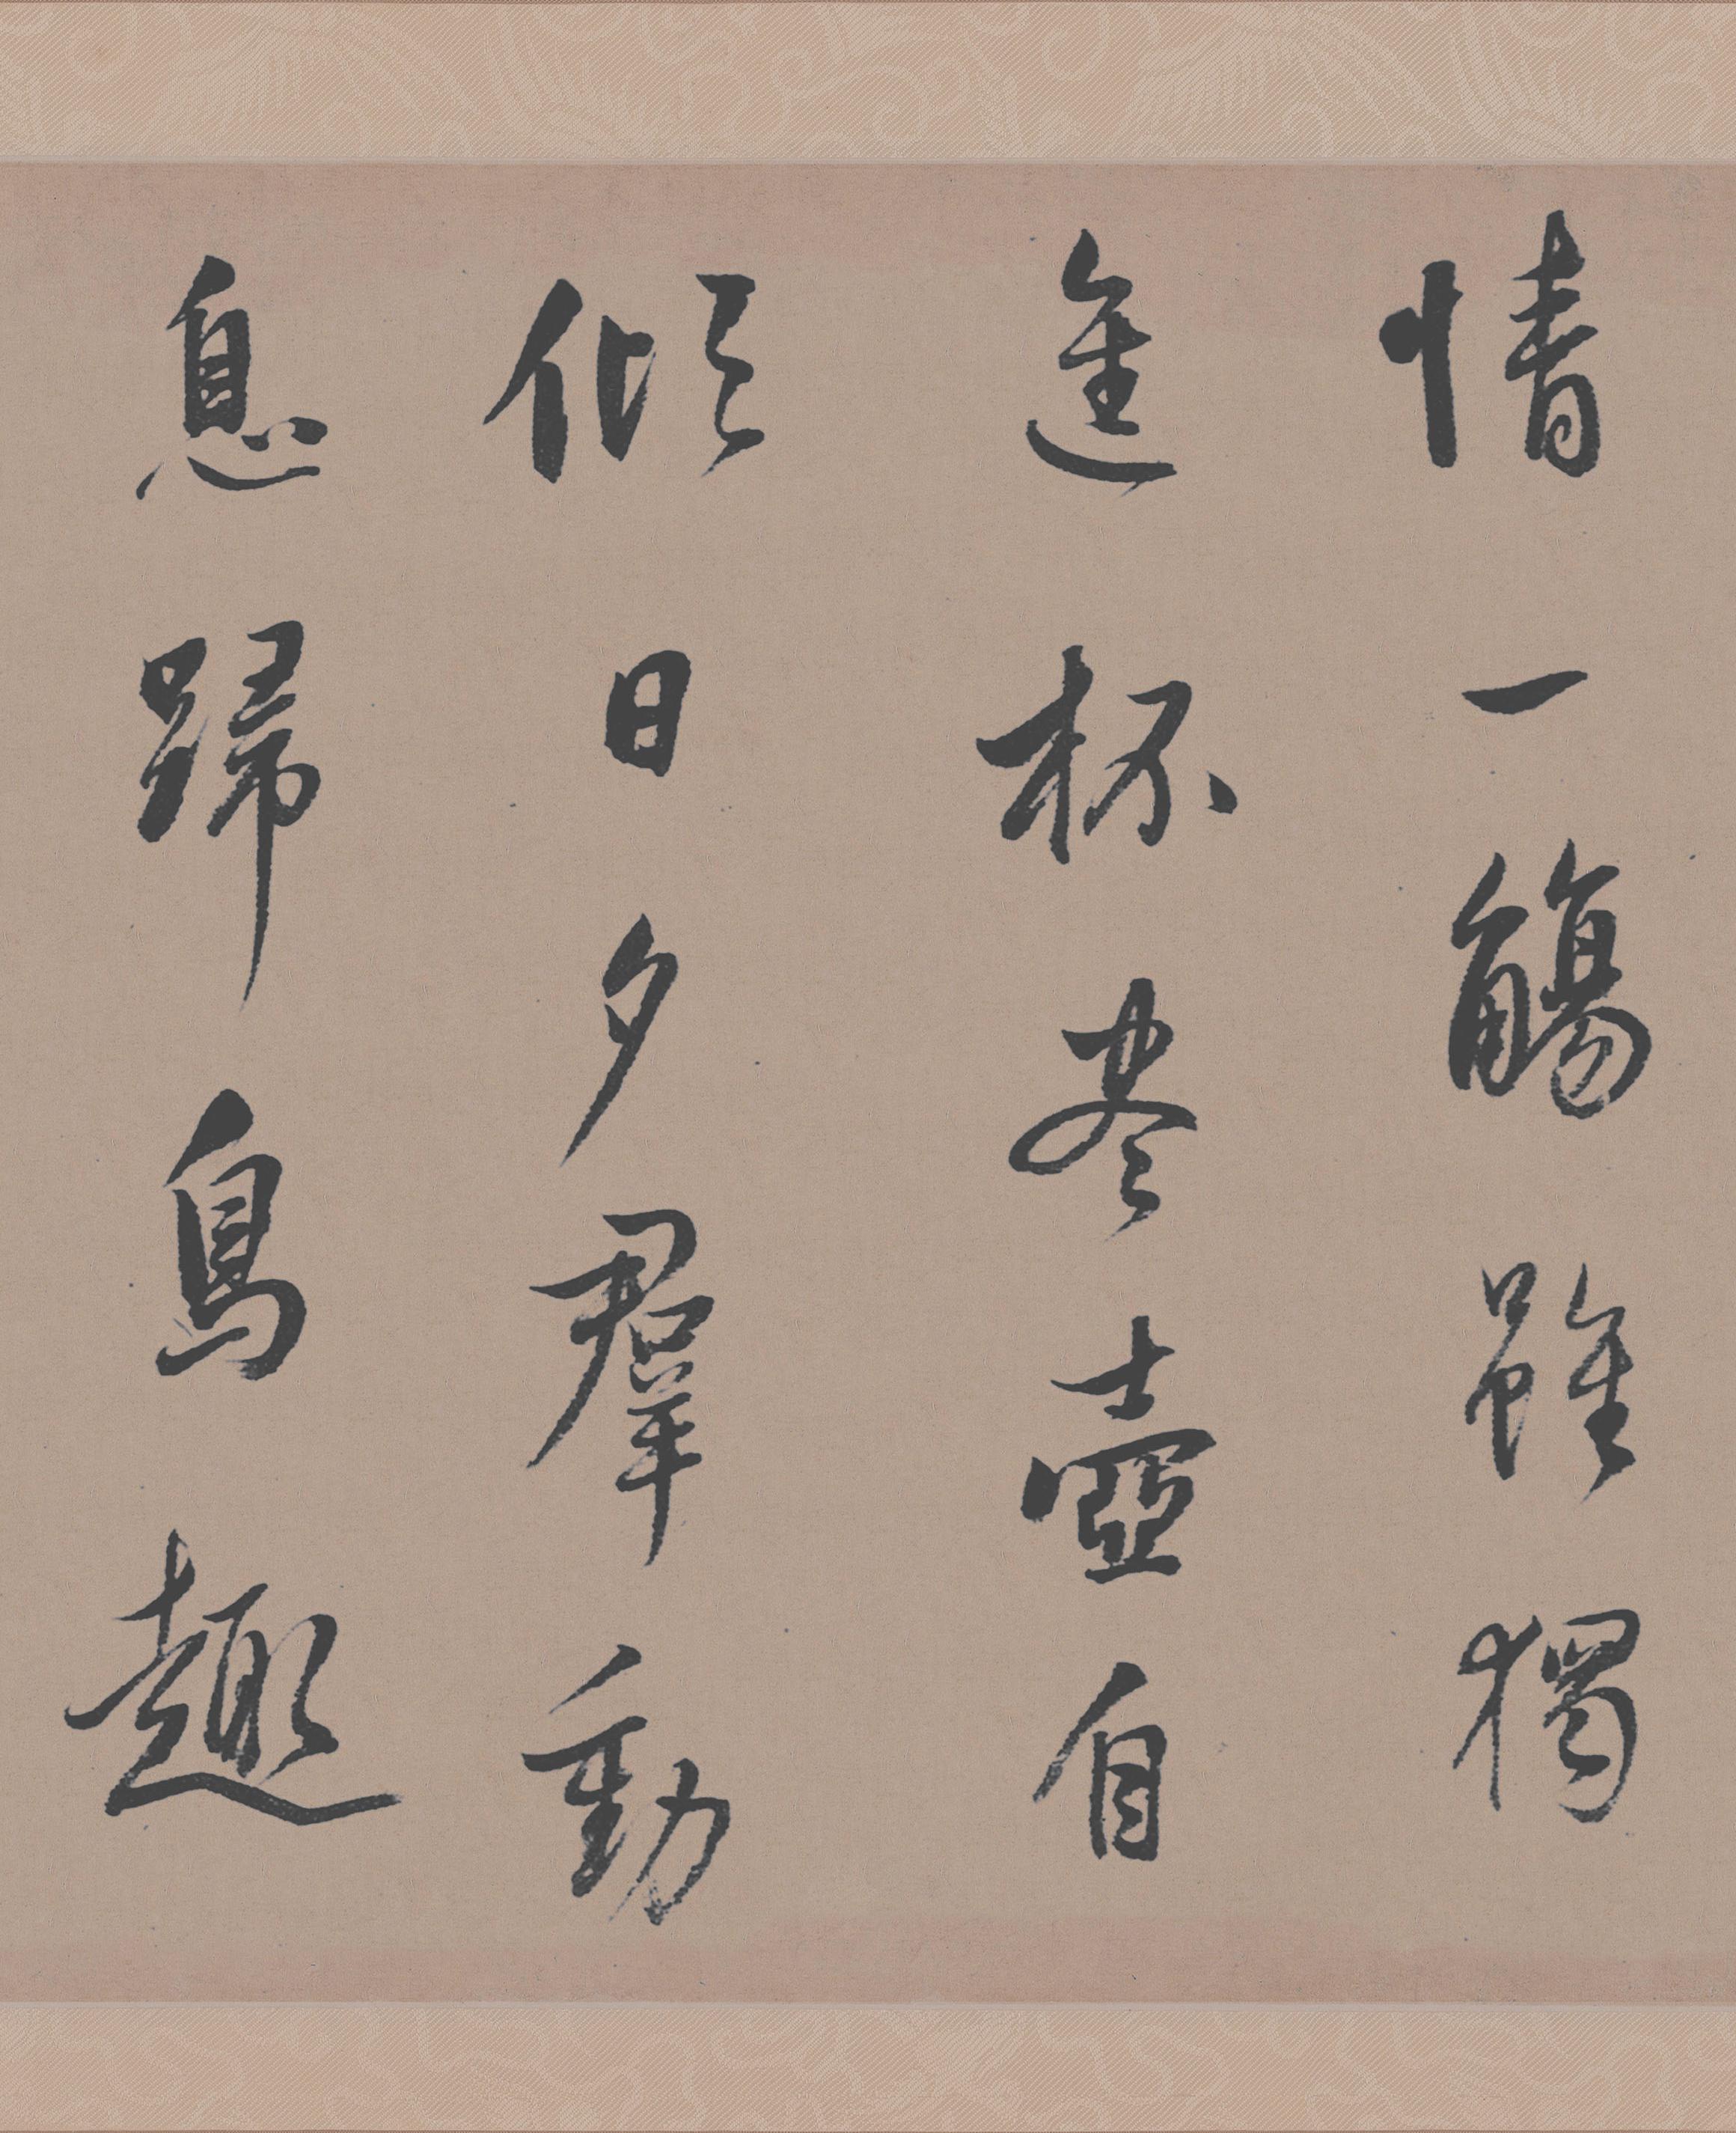 情一觴雖獨
進杯盡壺自
傾日夕羣動
息歸鳥趣